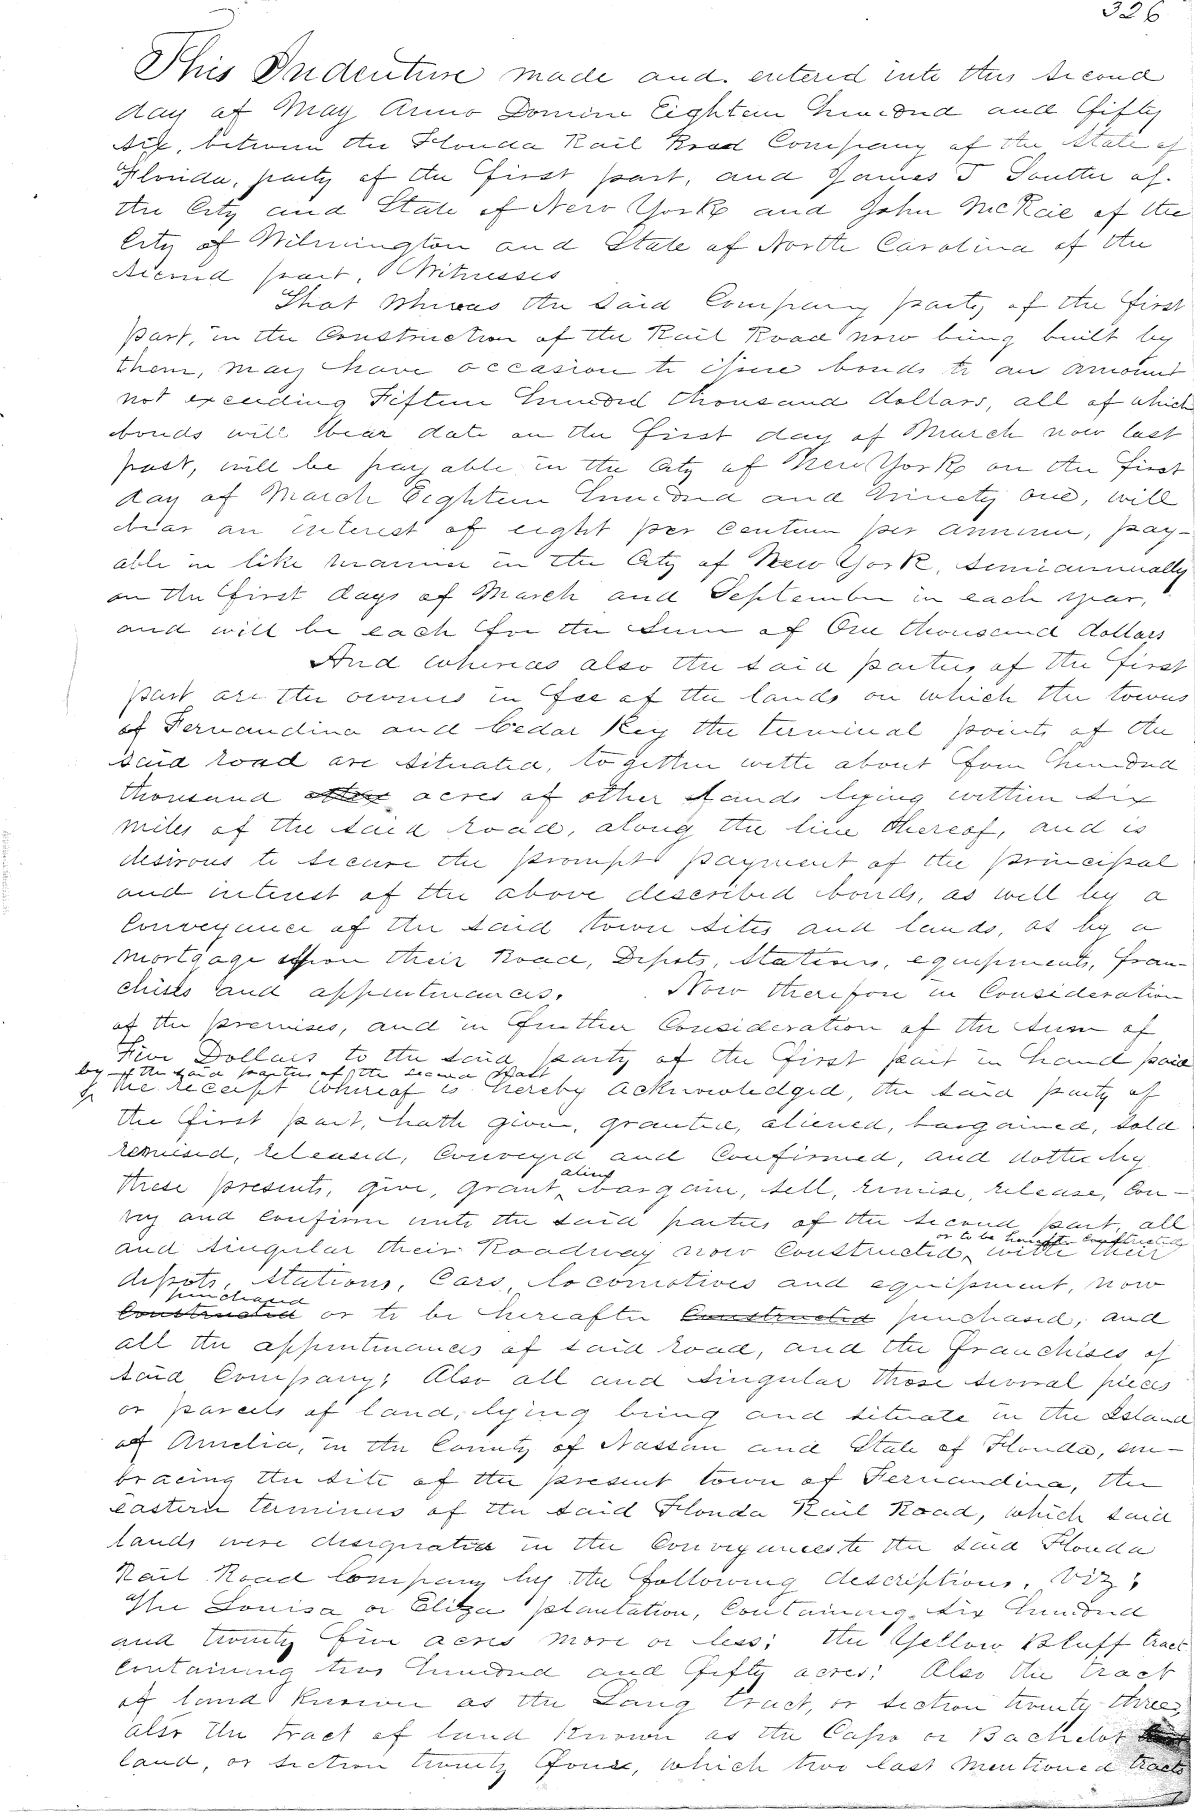 326
This Indenture made and entered into this second
day of May Anno Domini Eighteen hundred and fifty
six, between the Florida Rail Road Company of the State of
Florida, party of the first part, and James T Soutter of
the City and State of New York and John McRae of the
City of Wilmington and State of North Carolina of the
second part, Witnesses
That whereas the said Company party of the first
part, in the Construction of the Rail Road now being built by
them, may have occasion to issue bonds to an amount
not exceeding Fifteen hundred thousand dollars, all of which
bonds will bear date on the first day of March now last
past, will be payable in the City of New York on the first
day of March Eighteen hundred and ninety one, will
bear an interest of eight per centum per annum, pay-
able in like manner in the City of New York, semiannually
on the first days of March and September in each year,
and will be each for the Sum of One thousand dollars
And whereas also the said parties of the first
part are the owners in fee of the lands on which the towns
of Fernandina and Cedar Key the terminal points of the
said road are situated, together with about four hundred
thousand acres of other lands lying within six
miles of the said road, along the line thereof, and is
desirous to secure the prompt payment of the principal
and interest of the above described bonds, as well by a
conveyance of the said town sites and lands, as by a
mortgage upon their Road, Depots, Stations, equipments, fran-
chises and appurtenances. Now therefore in Consideration
of the premises, and in further Consideration of the sum of
Five Dollars to the said party of the first part in hand paid
by the said parties of the second part
the receipt whereof is hereby acknowledged, the said party of
the first part, hath given, granted, aliened, bargained, sold
remised, released, conveyed and confirmed, and doth by
these presents, give, grant, alien, bargain, sell, remise, release, con-
vey and confirm unto the said parties of the second part, all
and singular their Roadway now Constructed or to be hereafter constructed, with their
depots, stations, cars, locomotives and equipment, now
purchased
Constructed or to be hereafter Constructed purchased, and
all the appurtenances of said road, and the franchises of
said Company; Also all and singular those several pieces
or parcels of land, lying being and situate in the Island
of Amelia, in the County of Nassau and State of Florida, em-
bracing the site of the present town of Fernandina, the
eastern terminus of the said Florida Rail Road, which said
lands were designated in the Conveyances to the said Florida
Rail Road Company by the following descriptions, viz;
The Louisa or Eliza plantation, containing six hundred
and twenty five acres more or less; the Yellow Bluff tract
containing two hundred and fifty acres; Also the tract
of land known as the Lang tract, or section twenty three;
also the tract of land known as the Capo or Bachelot
land, or section twenty four, which two last mentioned tracts